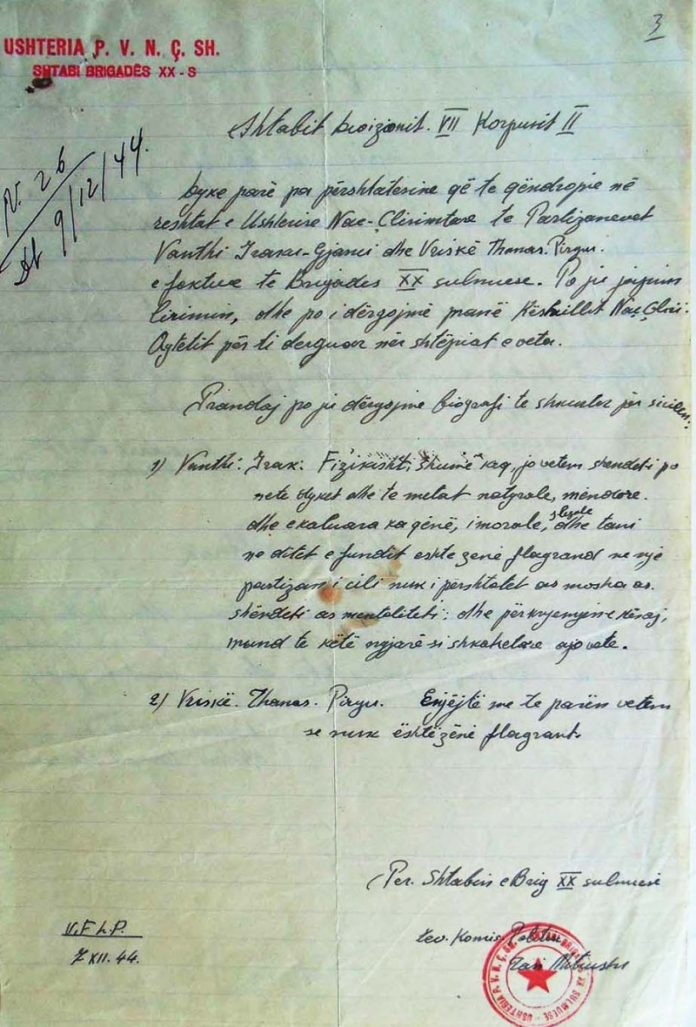 3
USHTERIA P. V. N. Ç. SH.
SHTABI BRIGADËS XX - S
N. 26
Dt 9/12/44.
Shtabit Divizionit. VII Korpusit II
Dyke parë pa përshtatesine që te qëndrojnë në
reshtat e Ushterise Nac-Çlirimtare te Partizanevet
Vanthi Gjanci dhe Vriskë Thanas. Pirgu.
e te Brigades XX sulmuese. Po ju japim
lirimin, dhe po i dërgojmë pranë Këshillit Naç-Çlir.
Qytetit për ti derguar nër shtëpiat e veta.
Prandaj po ju dërgojme biografi te shkurter për
1) Vanthi: Fizikisht, shumë keq, jo vetem shendeti po
nete dyket dhe te metat natyrale, mëndore.
dhe e kaluara ka qënë, imorale, dhe tani
ne ditet e fundit eshte zenë flagrand ne një
partizan i cili nuk i përshtatet as mosha as.
shëndeti as mentaliteti: dhe për kësaj,
mund te këtë ngjarë si shkaktare ajo vete.
2) Vriskë. Thanas. Pirgu. Enjëjtë me te parën vetem
se nuk është zënë flagrant.
Per. Shtabin e Brig XX sulmuese
V.F.L.P.
XII. 44.
Zav. Komis.
USHTERIA P. V. N. Ç. SH. SULMUESE